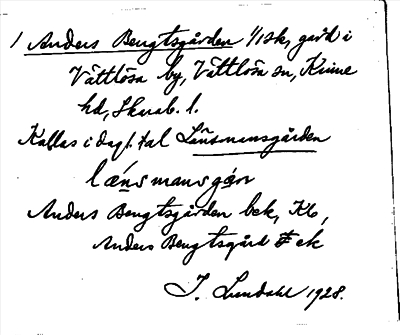 1 Anders Bengtsgården 1/1 sk, gård i
Vättlösa by, Vättlösa sn, Kinne
hd, Skarab. l.
Kallas i dagl. tal Länsmansgården
lænsmansgå̱r
Anders Bengtsgården bek, Kb,
Anders Bengtsgård ek
I. Lundahl 1928.